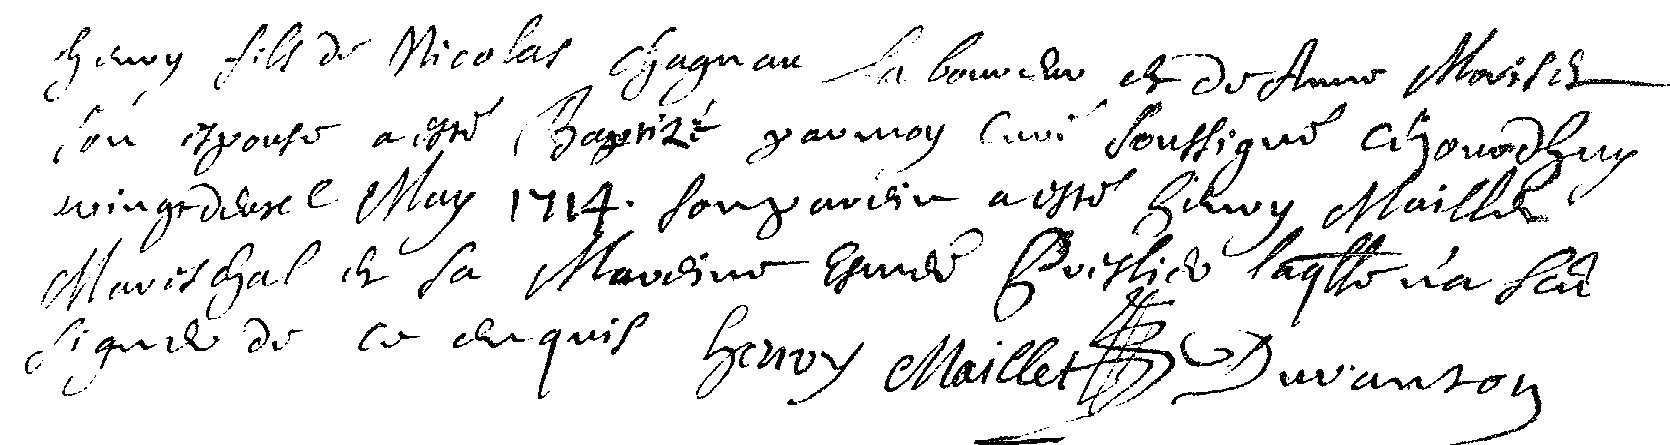 henry fils de Nicolas Chagnau laboureur et de Anne Moriset
son espouse a esté Baptizé par moy Curé soussigné cejourdhuy
vingtdeuxe May 1714. son parein a esté henry Maillet
Marischal et sa Mareine laqlle n'a sceu
signer de ce enquis henry Maillet Duvanton